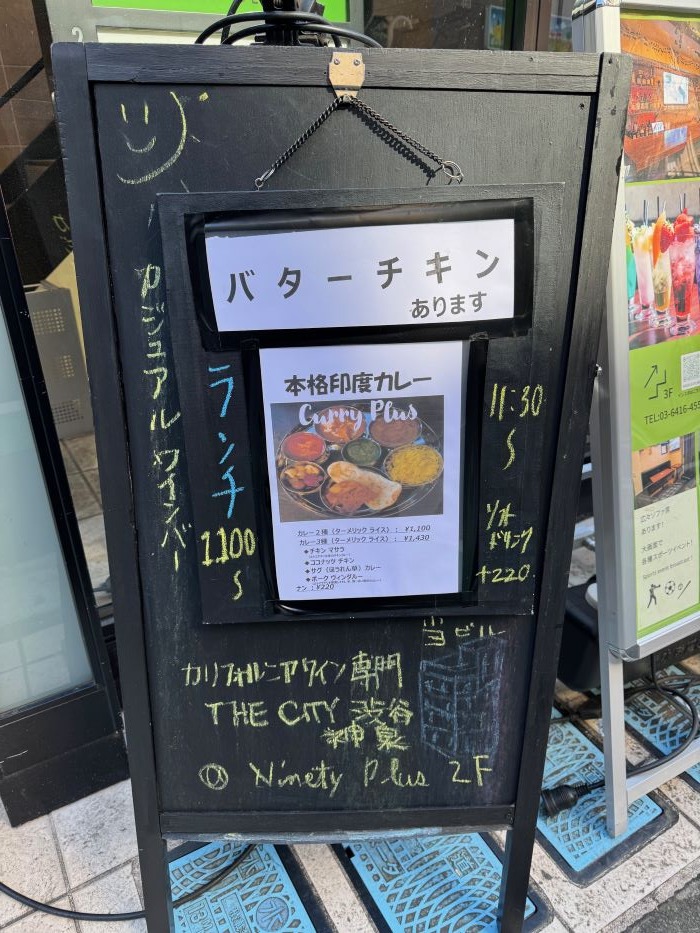 カジュアル ワインバー
バターチキン
あります
本格印度カレー
Curry Plus
カレー２種（ターメリック ライス）： ¥1,100
カレー３種（ターメリック ライス）： ¥1,430
◆チキン マサラ
◆ココナッツ チキン
◆サグ（ほうれん草）カレー
◆ポーク ヴィンダルー
ナン：¥220
ランチ
1100
〜
11:30
〜
ソフト
ドリンク
+220
当ビル
カリフォルニアワイン専門
THE CITY 渋谷
神泉
Ninety Plus 2F
3F
TEL:03-6416-455
広々ソファ席
あります!
大画面で
各種スポーツイベント!
Sports event broadcast!